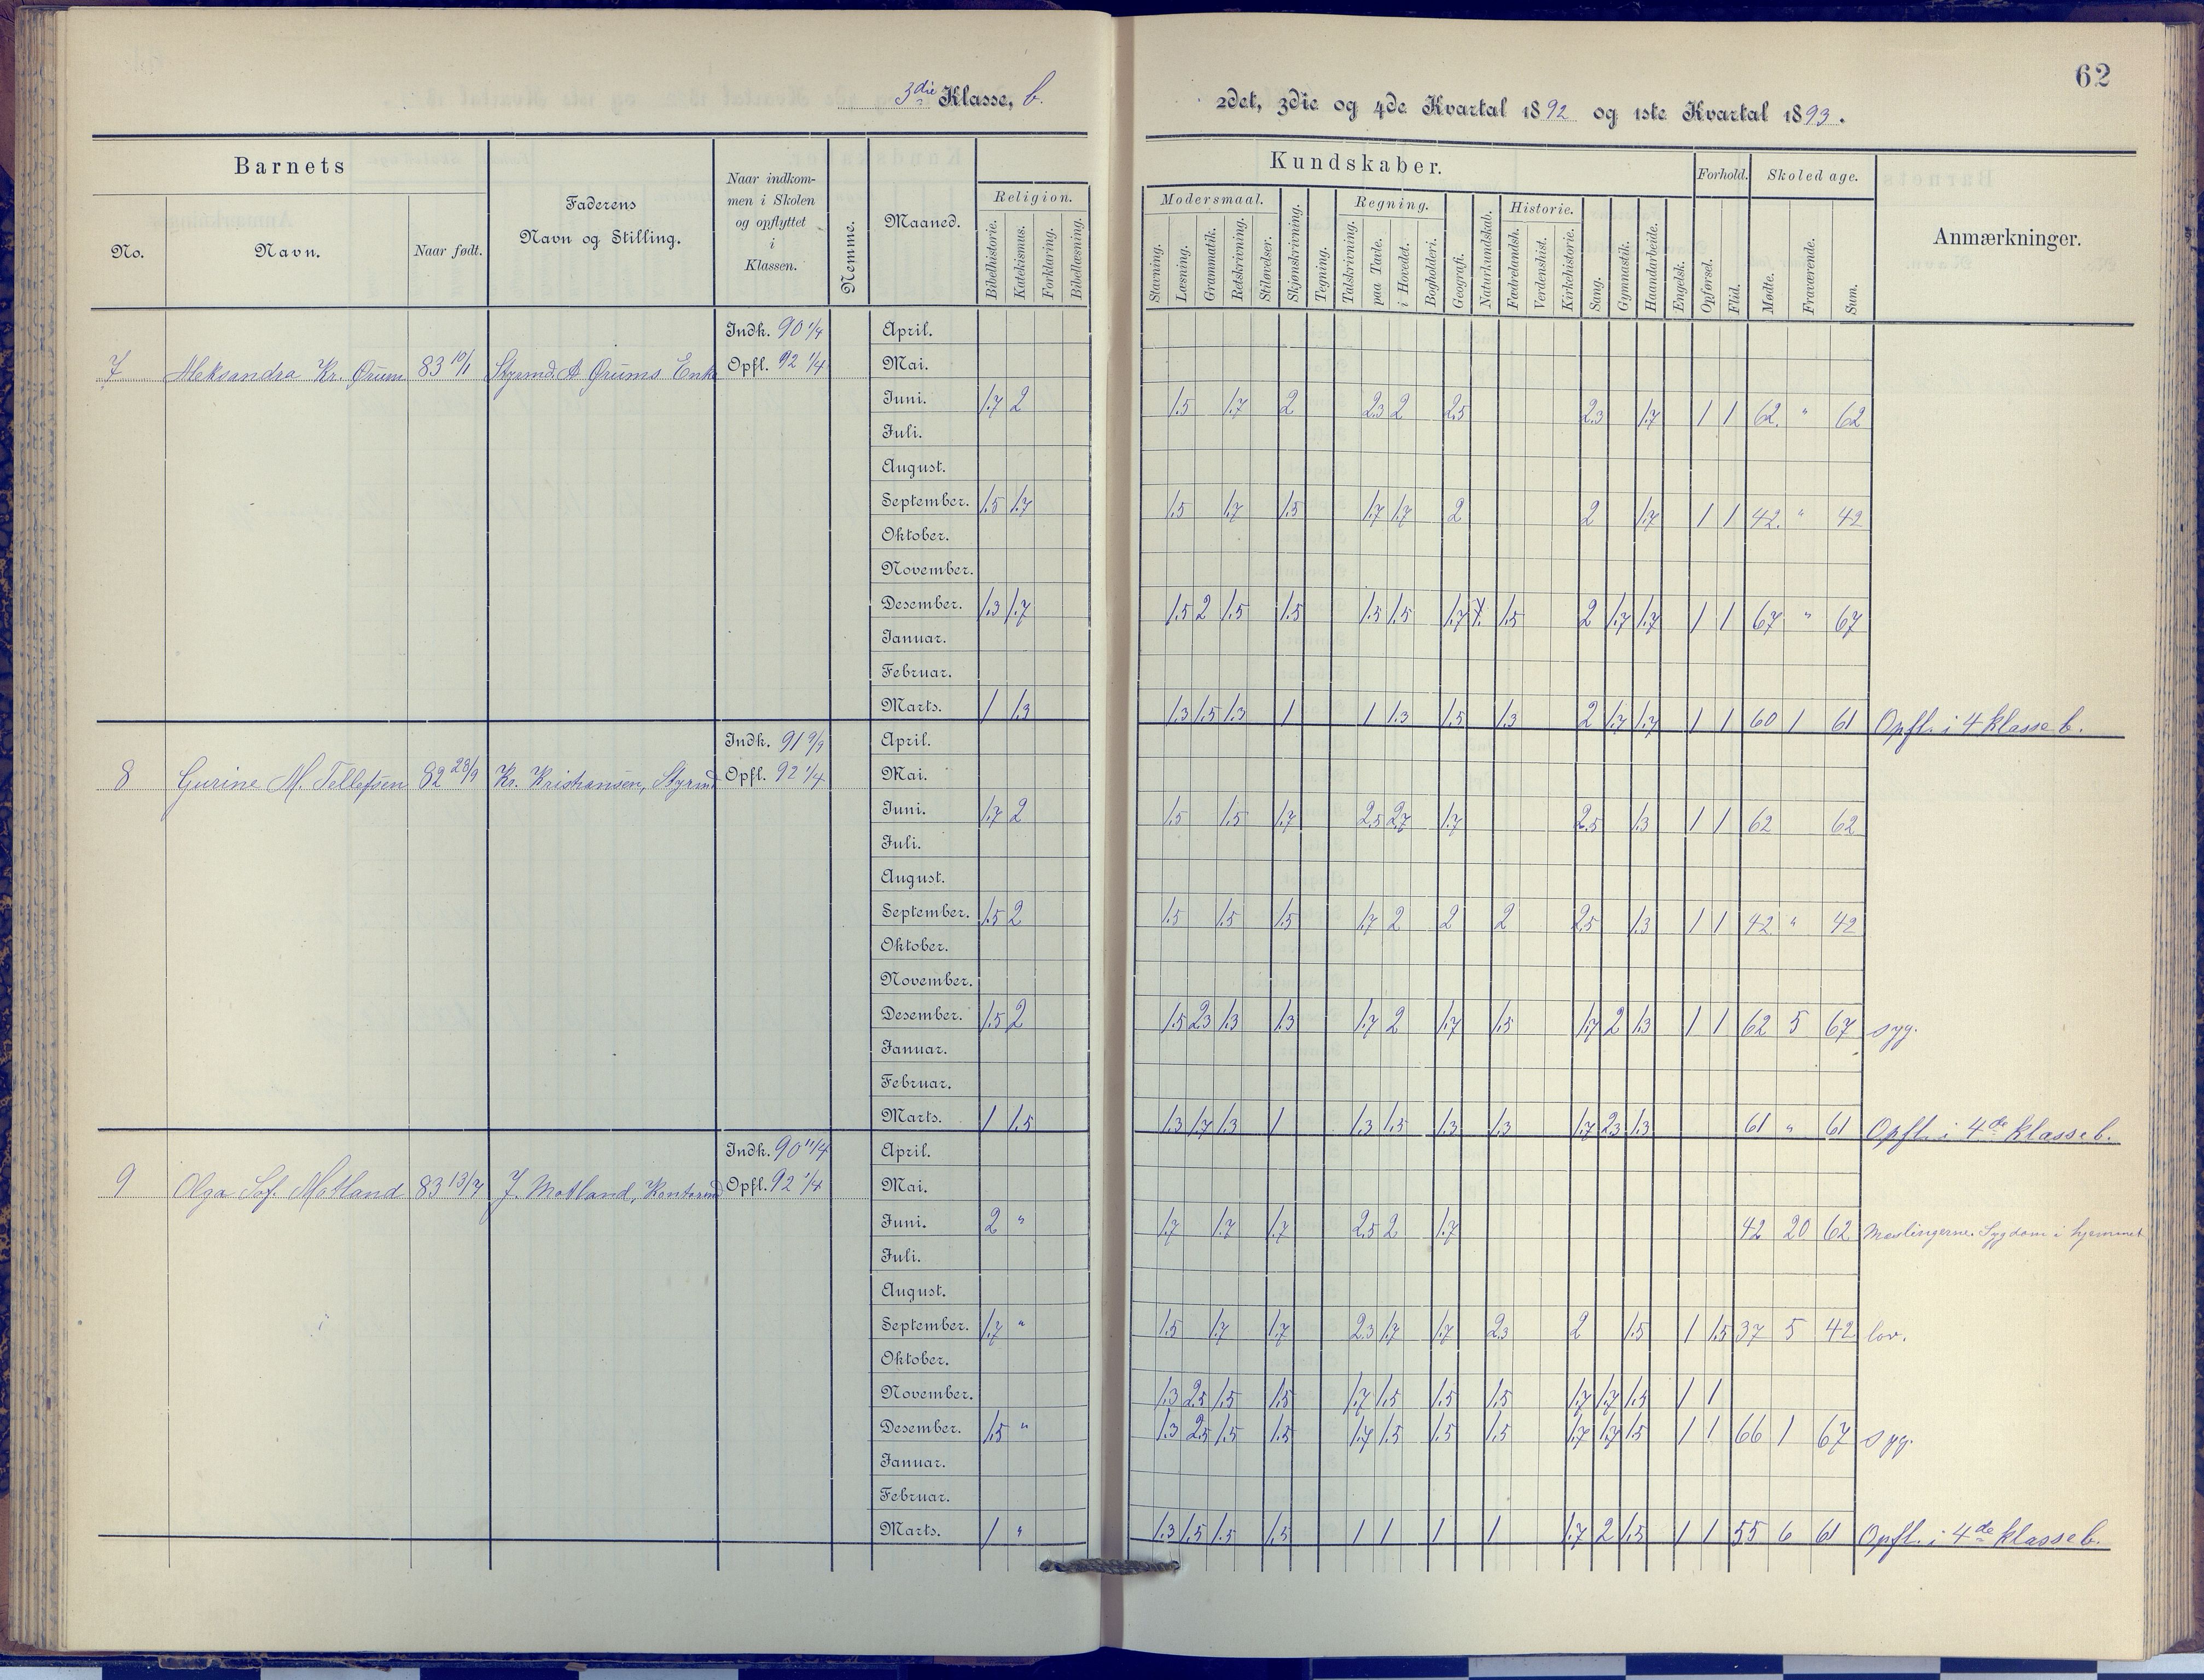 62
3die Klasse, b.
2det, 3die og 4de Kvartal 1892 og 1ste Kvartal 1893.
Barnets
Faderens Navn og Stilling.
Naar indkom-
men i Skolen
og opflyttet
i
Klassen.
Nemme.
Maaned.
Religion.
Kundskaber.
Forhold.
Skoledage.
Anmærkninger.
No.
Navn.
Naar født.
Bibelhistorie. Katekismus. Forklaring. Bibellæsning.
Modersmaal.
Stavning. Læsning. Grammatik. Retskrivning. Stiløvelser.
Skjønskrivning. Tegning.
Regning.
Talskrivning. paa Tavle. i Hovedet. Bogholderi.
Geografi. Naturkundskab.
Historie.
Fædrelandsh. Verdenshist. Kirkehistorie.
Sang. Gymnastik. Haandarbeide. Engelsk.
Opførsel. Flid.
Mødte. Fraværende. Sum.
Indk. 90 1/4 April.
7 Aleksandra Kr. Ørum 83 10/1 Styrmd. A Ørums Enke Opfl. 92 1/4 Mai.
Juni. 1.7 2 1.5 1.7 2 2.3 2 2.5 2.3 1.7 1 1 62 " 62
Juli.
August.
September. 1.5 1.7 1.5 1.7 1.5 1.7 1.7 2 2 1.7 1 1 42 " 42
Oktober.
November.
Desember. 1.3 1.7 1.5 2 1.5 1.5 1.5 1.5 1.7 1.5 2 1.7 1.7 1 1 67 " 67
Januar.
Februar.
Marts. 1 1.3 1.3 1.5 1.3 1 1 1.3 1.5 1.3 2 1.7 1.7 1 1 60 1 61 Opfl. i 4 klasse b.
Indk. 91 9/9 April.
8 Gurine M. Tellefsen 82 28/9 Kr. Kristiansen, Styrmd Opfl. 92 1/4 Mai.
Juni. 1.7 2 1.5 1.5 1.7 2.5 2.7 1.7 2.5 1.3 1 1 62 62
Juli.
August.
September. 1.5 2 1.5 1.5 1.5 1.7 2 2 2 2.5 1.3 1 1 42 " 42
Oktober.
November.
Desember. 1.5 2 1.5 2.3 1.3 1.3 1.7 2 1.7 1.5 1.7 2 1.3 1 1 62 5 67 syg.
Januar.
Februar.
Marts. 1 1.5 1.3 1.7 1.3 1 1.3 1.5 1.3 1.3 1.7 2.3 1.3 61 " 61 Opfl. i 4de klasse b.
Indk. 90 11/4 April.
9 Olga Sof. Motland 83 13/7 J. Motland, Kontormd Opfl. 92 1/4 Mai.
Juni. 2 " 1.7 1.7 1.7 2.5 2 1.7 42 20 62 Mæslingerne. Sygdom i hjemmet
Juli.
August.
September. 1.7 " 1.5 1.7 1.7 2.3 1.7 1.7 2.3 2 1.5 1 1.5 37 5 42 lov.
Oktober.
November. 1.3 2.5 1.5 1.5 1.7 1.5 1.5 1.5 1.7 1.7 1.5 1 1
Desember. 1.5 " 1.3 2.5 1.5 1.5 1.7 1.5 1.5 1.5 1.7 1.7 1.5 1 1 66 1 67 syg.
Januar.
Februar.
Marts. 1 " 1.3 1.5 1.5 1.5 1 1 1 1 1.7 2 1.5 1 1 55 6 61 Opfl. i 4de klasse b.